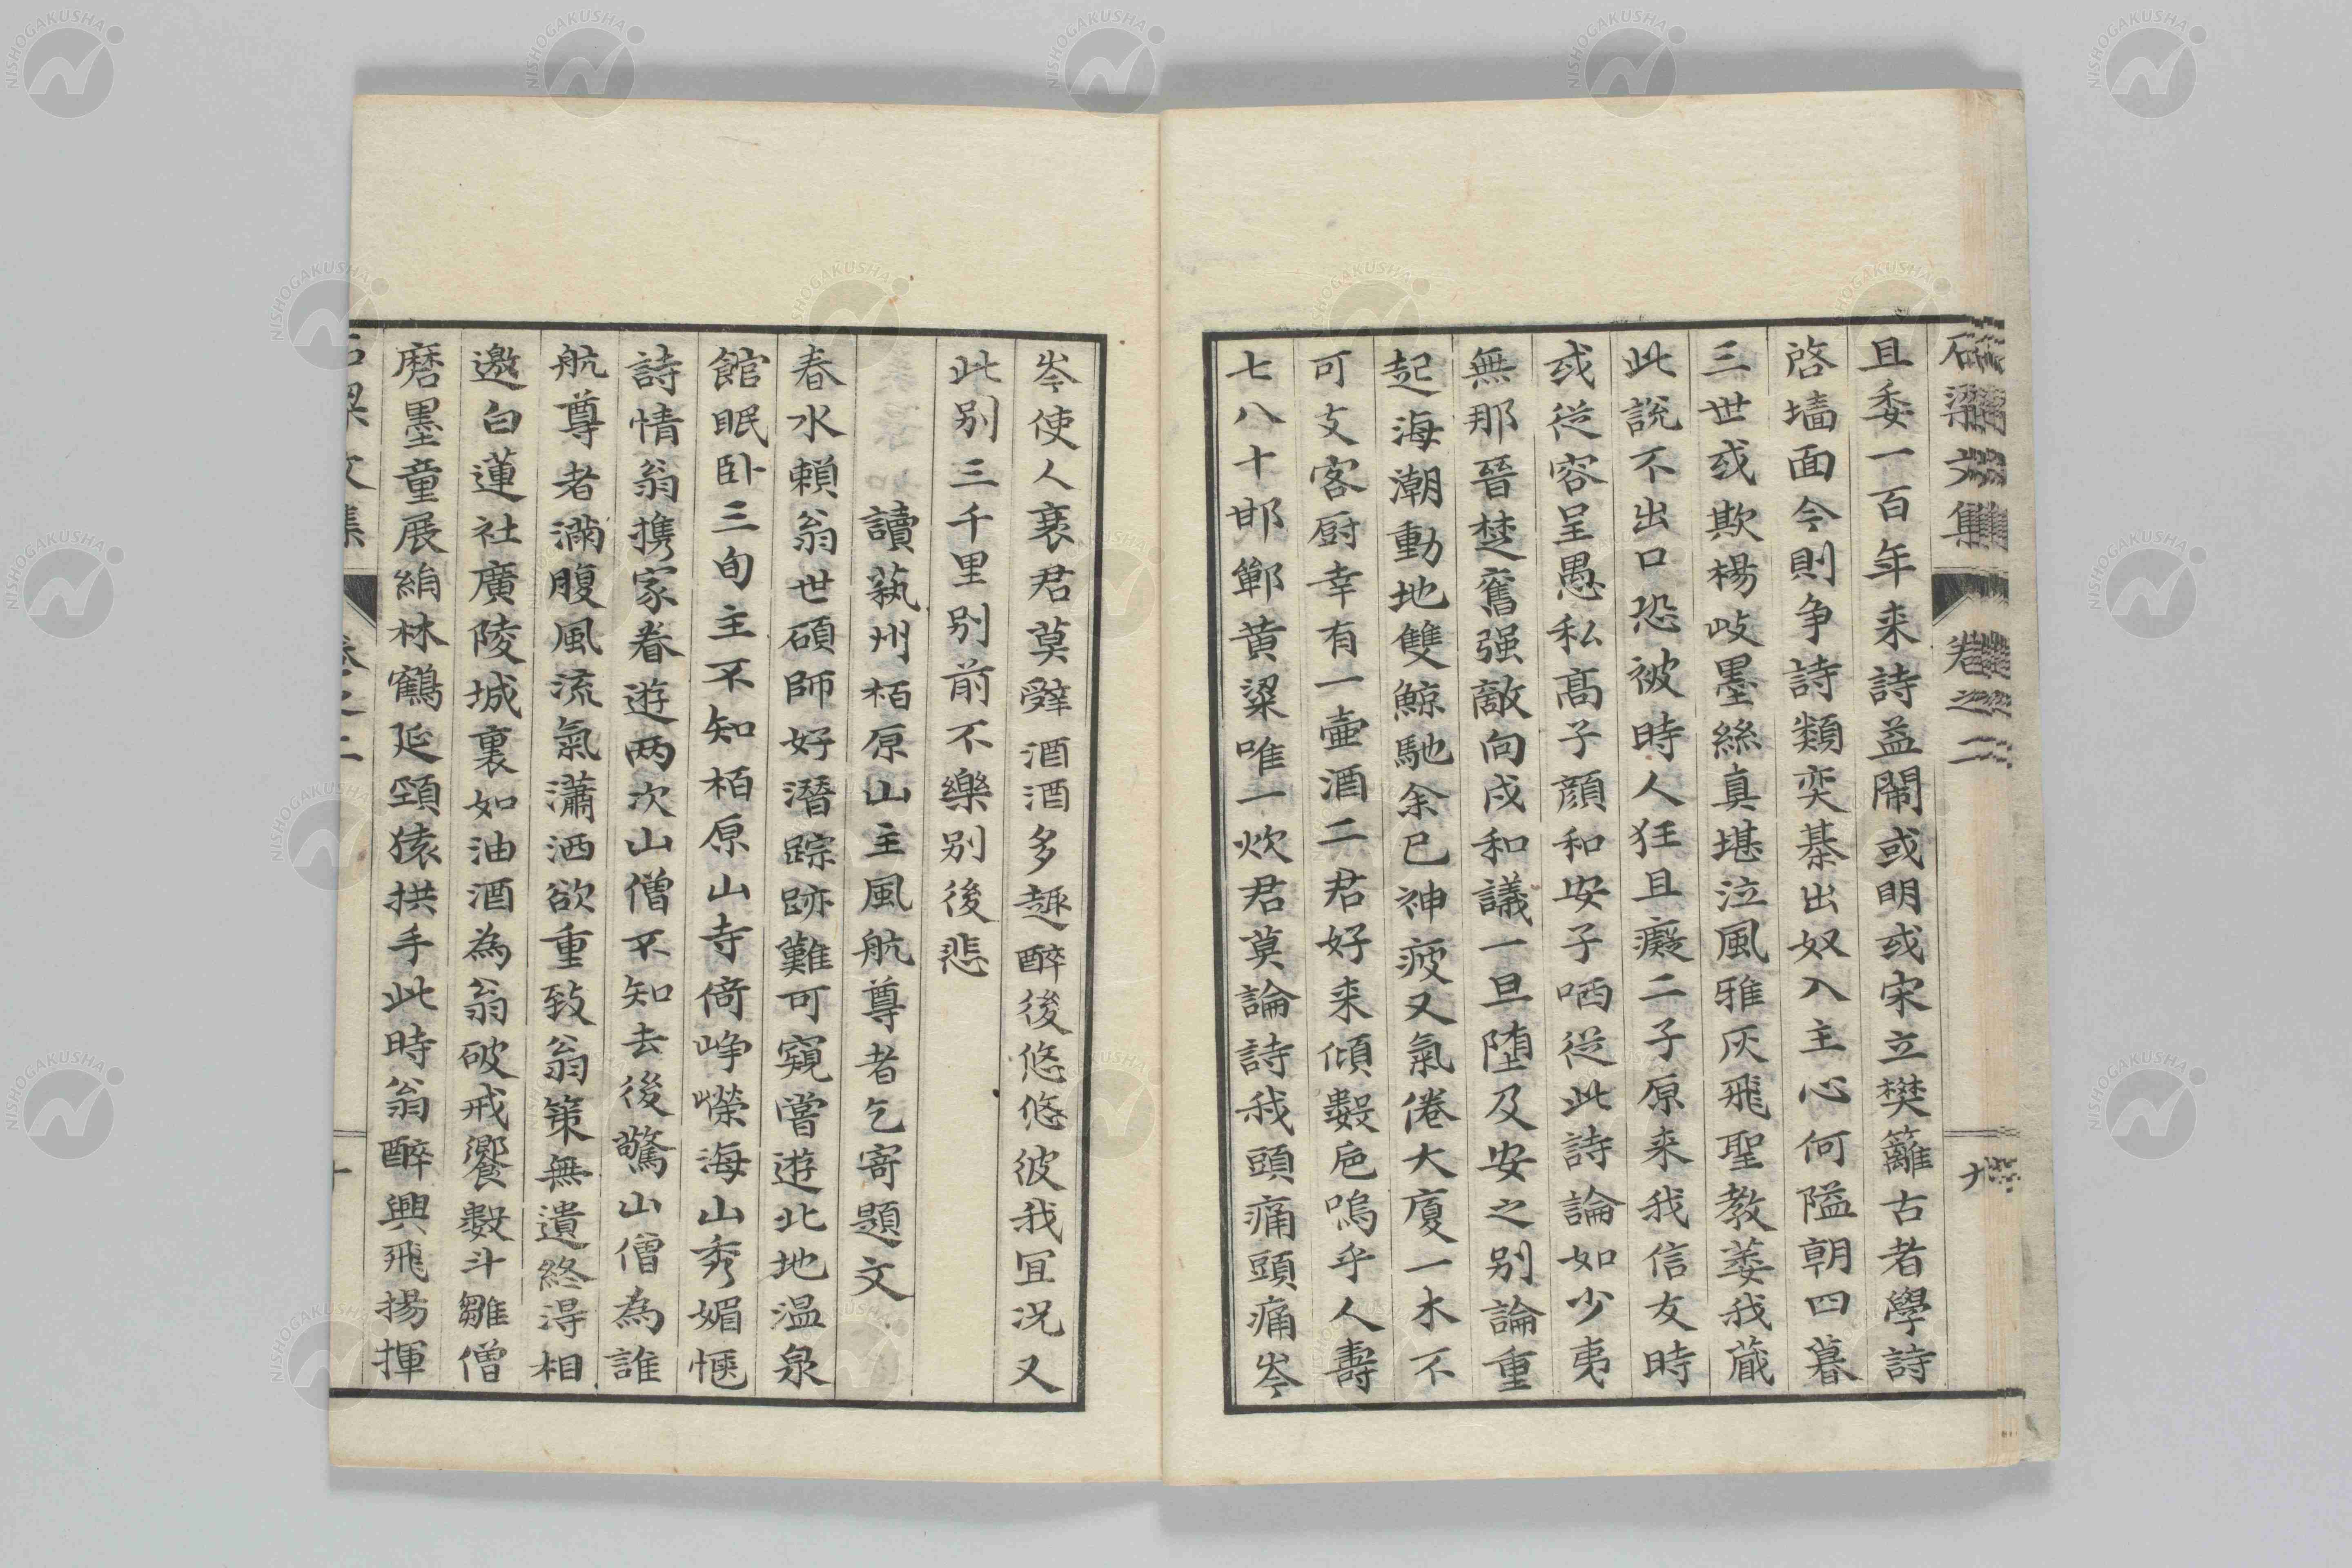 石梁文集 卷之二 九
且委一百年来詩益鬧或明或宋立樊籬古者學詩
啓墻面今則争詩類奕棊出奴入主心何隘朝四暮
三世或欺楊岐墨絲真堪泣風雅灰飛聖教萎我蔵
此説不出口恐被時人狂且癡二子原来我信友時
或従容呈愚私髙子顔和安子哂従此詩論如少夷
無那晉楚奮强敵向戌和議一旦堕及安之别論重
起海潮動地雙鯨馳余已神疲又氣倦大廈一木不
可支客厨幸有一壷酒二君好来傾數巵嗚乎人壽
七八十邯鄲黄粱唯一炊君莫論詩我頭痛頭痛岑
岑使人衰君莫辤酒酒多趣醉後悠悠彼我冝况又
此别三千里别前不樂别後悲
讀蓺州栢原山主風航尊者乞寄題文
春水賴翁世碩師好潛踪跡難可窺嘗遊此地温泉
館眠卧三旬主不知栢原山寺倚崢嶸海山秀媚愜
詩情翁携家眷遊两次山僧不知去後驚山僧為誰
航尊者滿腹風流氣瀟洒欲重致翁策無遺終淂相
邀白蓮社廣陵城裏如油酒為翁破戒饗數斗雛僧
磨墨童展絹林鶴延頸猿拱手此時翁醉興飛揚揮
石梁文集 卷之二 十
NISHOGAKUSHA